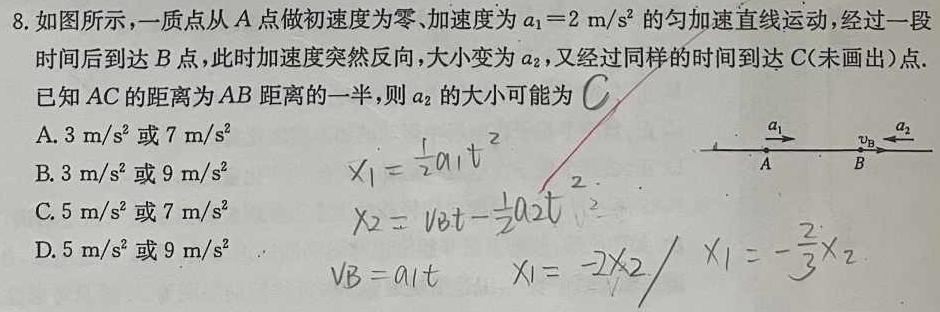 8. 如图所示,一质点从 A 点做初速度为零、加速度为 a₁=2 m/s² 的匀加速直线运动,经过一段
时间后到达 B 点,此时加速度突然反向,大小变为 a₂,又经过同样的时间到达 C(未画出)点.
已知 AC 的距离为 AB 距离的一半,则 a₂ 的大小可能为 C
A. 3 m/s² 或 7 m/s²
B. 3 m/s² 或 9 m/s²
C. 5 m/s² 或 7 m/s²
D. 5 m/s² 或 9 m/s²
a₁ v_B a₂
A B
x₁ = ½a₁t²
x₂ = v_Bt - ½a₂t²
v_B = a₁t x₁ = -2x₂ / x₁ = -⅔x₂